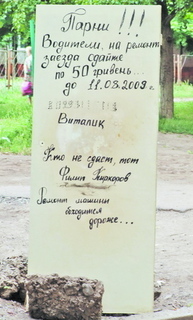 Парни!!!
Водители, на ремонт
заезда сдайте
по 50 гривень...
до 11.08.2009г.
Виталик
Кто не сдаст, тот
Филип Киркоров
Ремонт машины
обходится
дороже...